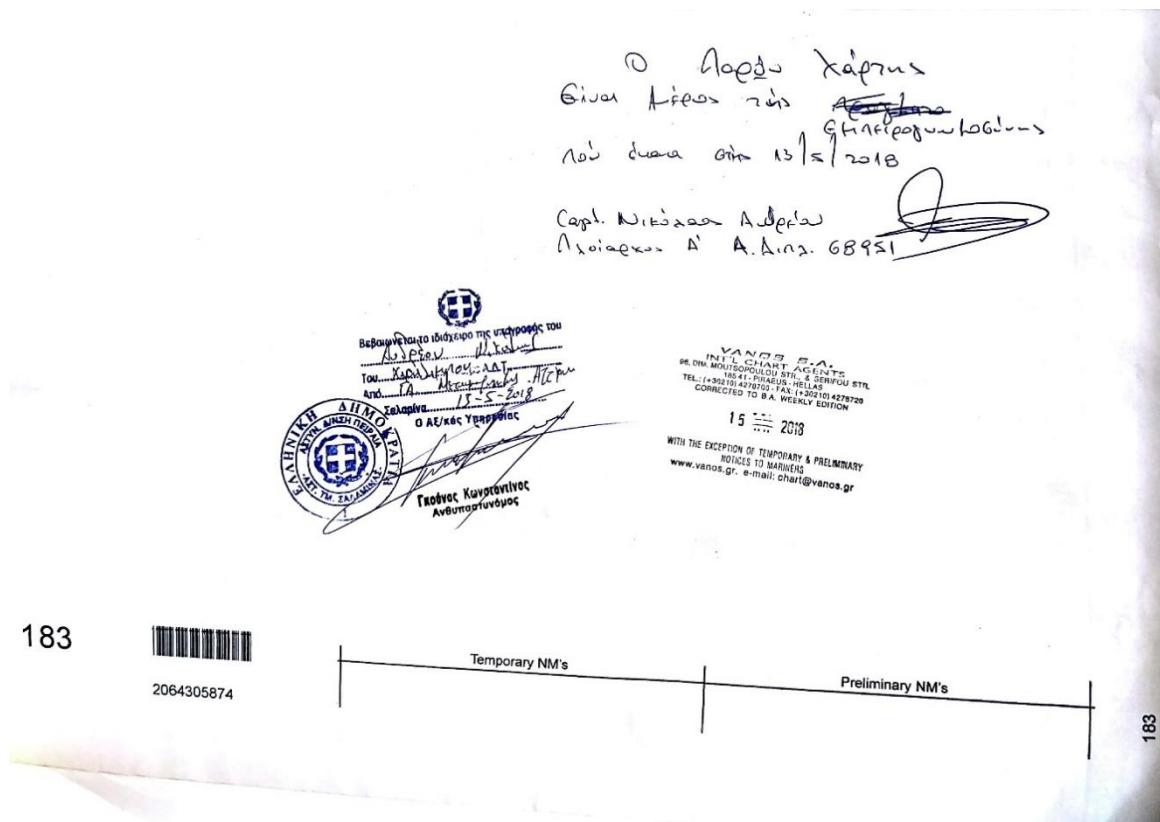 Ο παρών χάρτης
είναι μέρος της
εμπειρογνωμοσύνης
που έκανα στις 13/5/2018
Capt. Νικόλαος Ανδρέου
Πλοίαρχος Α' Α.Διπλ. 68951
Βεβαιώνεται το ιδιόχειρο της υπογραφής του
Του
Από
Σαλαμίνα 13-5-2018
Ο ΑΞ/κός Υπηρεσίας
ΕΛΛΗΝΙΚΗ ΔΗΜΟΚΡΑΤΙΑ
ΑΣΤΥΝ. Δ/ΝΣΗ ΠΕΙΡΑΙΑ
ΑΣΤ. ΤΜ. ΣΑΛΑΜΙΝΑΣ
Γκούνος Κωνσταντίνος
Ανθυπαστυνόμος
VANOS S.A.
INT'L CHART AGENTS
96, DIM. MOUTSOPOULOU STR., & SERIFOU STR.
185 41 - PIRAEUS - HELLAS
TEL.: (+30210) 4270700 - FAX: (+30210) 4278720
CORRECTED TO B.A. WEEKLY EDITION
15 2018
WITH THE EXCEPTION OF TEMPORARY & PRELIMINARY
NOTICES TO MARINERS
www.vanos.gr. e-mail: chart@vanos.gr
183
2064305874
Temporary NM's
Preliminary NM's
183